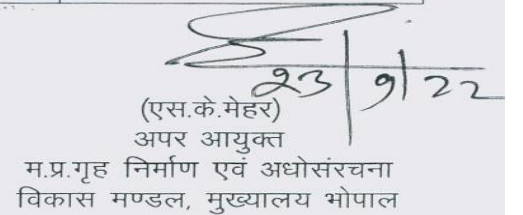 23/9/22
(एस.के.मेहर)
अपर आयुक्त
म.प्र.गृह निर्माण एवं अधोसंरचना
विकास मण्डल, मुख्यालय भोपाल